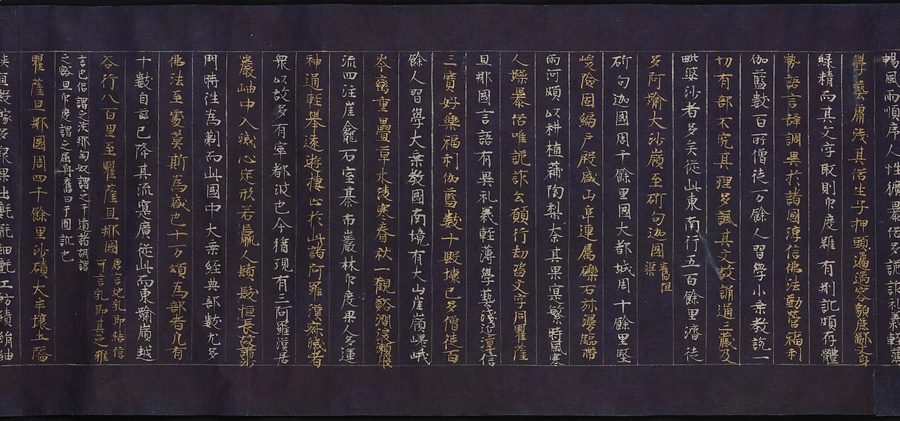 暢風雨順序人性獷暴俗多詭詐礼義輕薄
學藝膚淺其俗生子押頭匾㔸容貌麁鄙文身
緑精而其文字取則印度雖有刪訛頗存體
勢語言辭調異於諸國淳信佛法勤營福利
伽藍數百所僧徒一万餘人習學小乗教説一
切有部不究其理多諷其文故誦通三藏及
毗婆沙者多矣従此東南行五百餘里濟徙
多河踰大沙嶺至斫句迦國舊曰沮渠
斫句迦國周千餘里國大都城周十餘里堅
峻險固編戸殷盛山阜連属礫石弥漫臨帶
兩河頗以耕植蒲陶梨柰其果寔繁時風寒
人躁暴俗唯詭詐公顯行劫盗文字同瞿薩
旦那國言語有異礼義輕薄學藝淺近淳信
三寳好樂福利伽藍數十毀壞已多僧徒百
餘人習學大乗教國南境有大山崖嶺嵯峨
峯巒重疊草木凌寒春秋一觀谿澗浚瀨飛
流四注崖龕石室棊布巖林印度果人多運
神通輕舉遠遊棲止於此諸阿羅漢寂滅者
衆以故多有窣都波也今猶現有三阿羅漢居
巖岫中入滅心定形若羸人鬚髮恒長故諸沙
門時往為剃而此國中大乗經典部數尤多
佛法至處莫斯為盛也十万頌為部者凡有
十數自茲已降其流寔廣従此而東踰嶺越
谷行八百里至瞿薩旦那國唐言地乳即其俗之雅
言也俗謂之渙那匈奴謂之于遁諸胡謂
之谿旦印度謂之屈丹舊曰于闐訛也
瞿薩旦那國周四千餘里沙磧大半壤土隘
狹宜穀稼多衆果出氍毹細氈工紡績絁紬